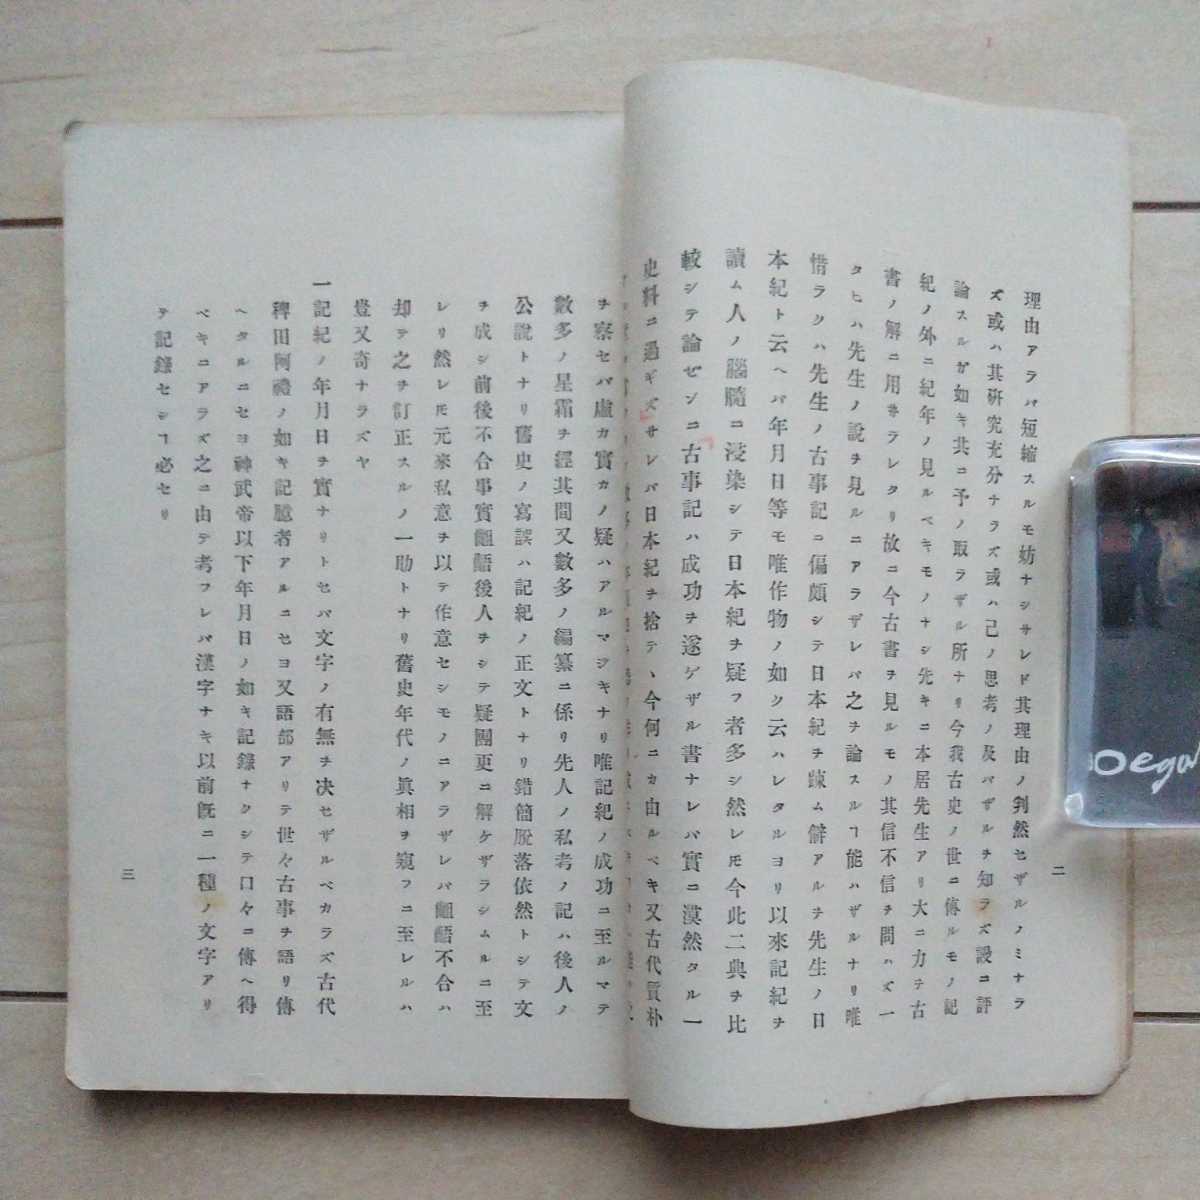 理由アラバ短縮スルモ妨ナシサレド其理由ノ判然セザルノミナラ
ズ或ハ其研究充分ナラズ或ハ己ノ思考ノ及バザルヲ知ラズ設コ評
論スルガ如キ共ニ予ノ取ラザル所ナリ今我古史ノ世ニ傳ルモノ記
紀ノ外ニ紀年ノ見ルベキモノナシ先キニ本居先生アリ大ニ力テ古
書ノ解ニ用井ラレタリ故ニ今古書ヲ見ルモノ其信不信ヲ問ハズ一
タヒハ先生ノ說ヲ見ルニアラザレバ之ヲ論スルヿ能ハザルナリ唯
惜ラクハ先生ノ古事記ニ偏頗シテ日本紀ヲ踈ム僻アルヲ先生ノ日
本紀ト云ヘバ年月日等モ唯作物ノ如ク云ハレタルヨリ以來記紀ヲ
讀ム人ノ腦髓ニ浸染シテ日本紀ヲ疑フ者多シ然レ𪜈今此二典ヲ比
較シテ論ゼンニ古事記ハ成功ヲ遂ゲザル書ナレバ實ニ漠然タル一
史料ニ過ギズサレバ日本紀ヲ捨テヽ今何ニカ由ルベキ又古代質朴
二
ヲ察セバ虛カ實カノ疑ハアルマジキナリ唯記紀ノ成功ニ至ルマテ
數多ノ星霜ヲ經其間又數多ノ編纂ニ係リ先人ノ私考ノ記ハ後人ノ
公說トナリ舊史ノ寫誤ハ記紀ノ正文トナリ錯簡脫落依然トシテ文
ヲ成シ前後不合事實齟齬後人ヲシテ疑團更ニ解ケザラシムルニ至
レリ然レ𪜈元來私意ヲ以テ作意セシモノニアラザレバ齟齬不合ハ
却テ之ヲ訂正スルノ一助トナリ舊史年代ノ眞相ヲ窺フニ至レルハ
豈又奇ナラズヤ
一記紀ノ年月日ヲ實ナリトセバ文字ノ有無ヲ決セザルベカラズ古代
稗田阿禮ノ如キ記臆者アルニセヨ又語部アリテ世々古事ヲ語リ傳
ヘタルニセヨ神武帝以下年月日ノ如キ記錄ナクシテ口々ニ傳ヘ得
ベキニアラズ之ニ由テ考フレバ漢字ナキ以前既ニ一種ノ文字アリ
テ記錄セシヿ必セリ
三